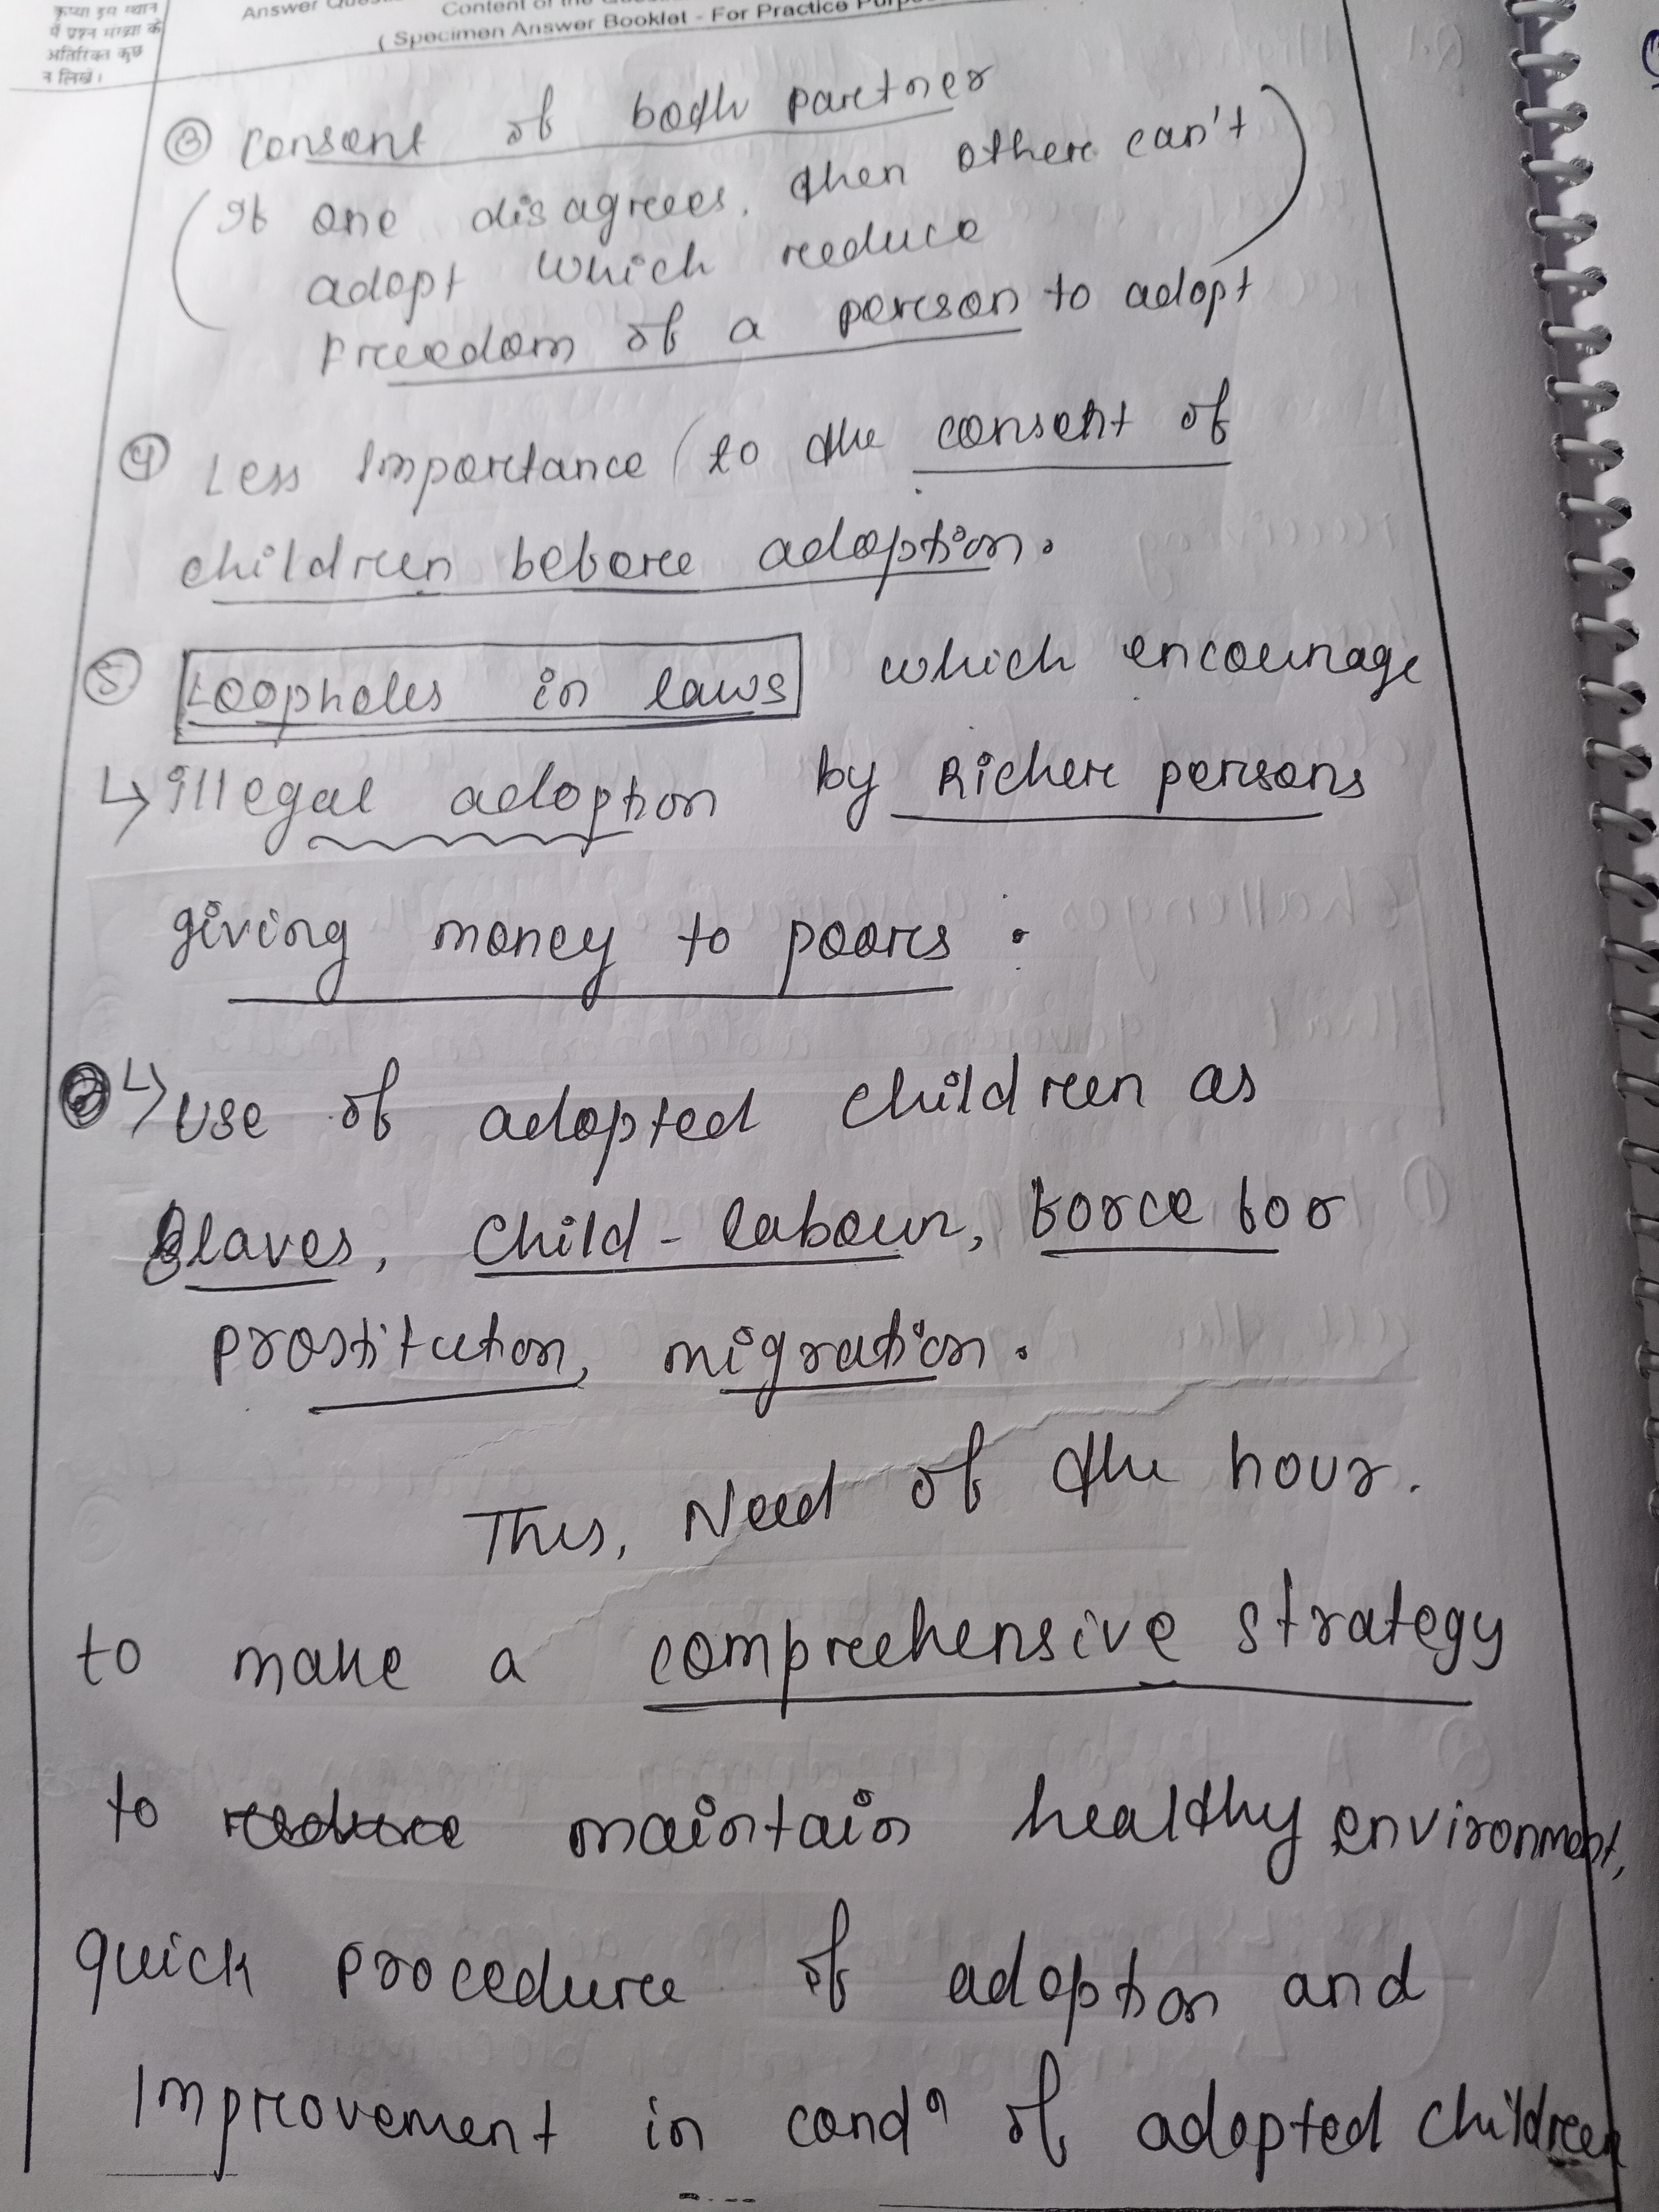 कृपया इस स्थान
में प्रश्न संख्या के
अतिरिक्त कुछ
न लिखें।
Content of the
(Specimen Answer Booklet - For Practice
③ Consent of both partner
(If one disagrees, then other can't
adopt which reduce
Freedom of a person to adopt)
④ Less Importance (to the consent of
children before adoption.
⑤ Loopholes in laws which encourage
↳ illegal adoption by Richer persons
giving money to poors.
↳ Use of adopted children as
Slaves, Child-labour, force for
prostitution, migration.
Thus, Need of the hour.
to make a comprehensive strategy
to reduce maintain healthy environment,
quick procedure of adoption and
Improvement in condⁿ of adopted children